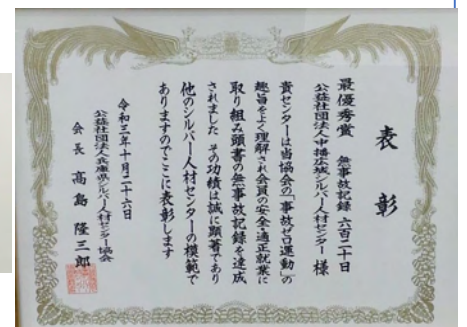 表彰
最優秀賞 無事故記録 六百二十日
公益社団法人中播広域シルバー人材センター 様
貴センターは当協会の「事故ゼロ運動」の
趣旨をよく理解され会員の安全・適正就業に
取り組み頭書の無事故記録を達成
されました その功績は誠に顕著であり
他のシルバー人材センターの模範で
ありますのでここに表彰します
令和三年十月二十六日
公益社団法人兵庫県シルバー人材センター協会
会長 高島 隆三郎